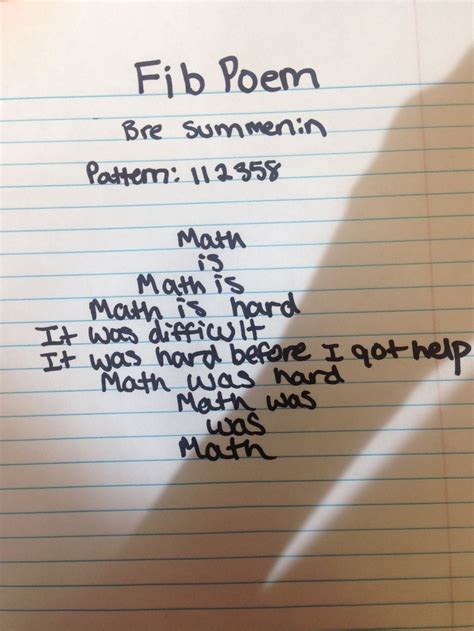 Fib Poem
Bre Summenin
Pattern: 112358
Math
is
Math is
Math is hard
It was difficult
It was hard before I got help
Math was hard
Math was
was
Math